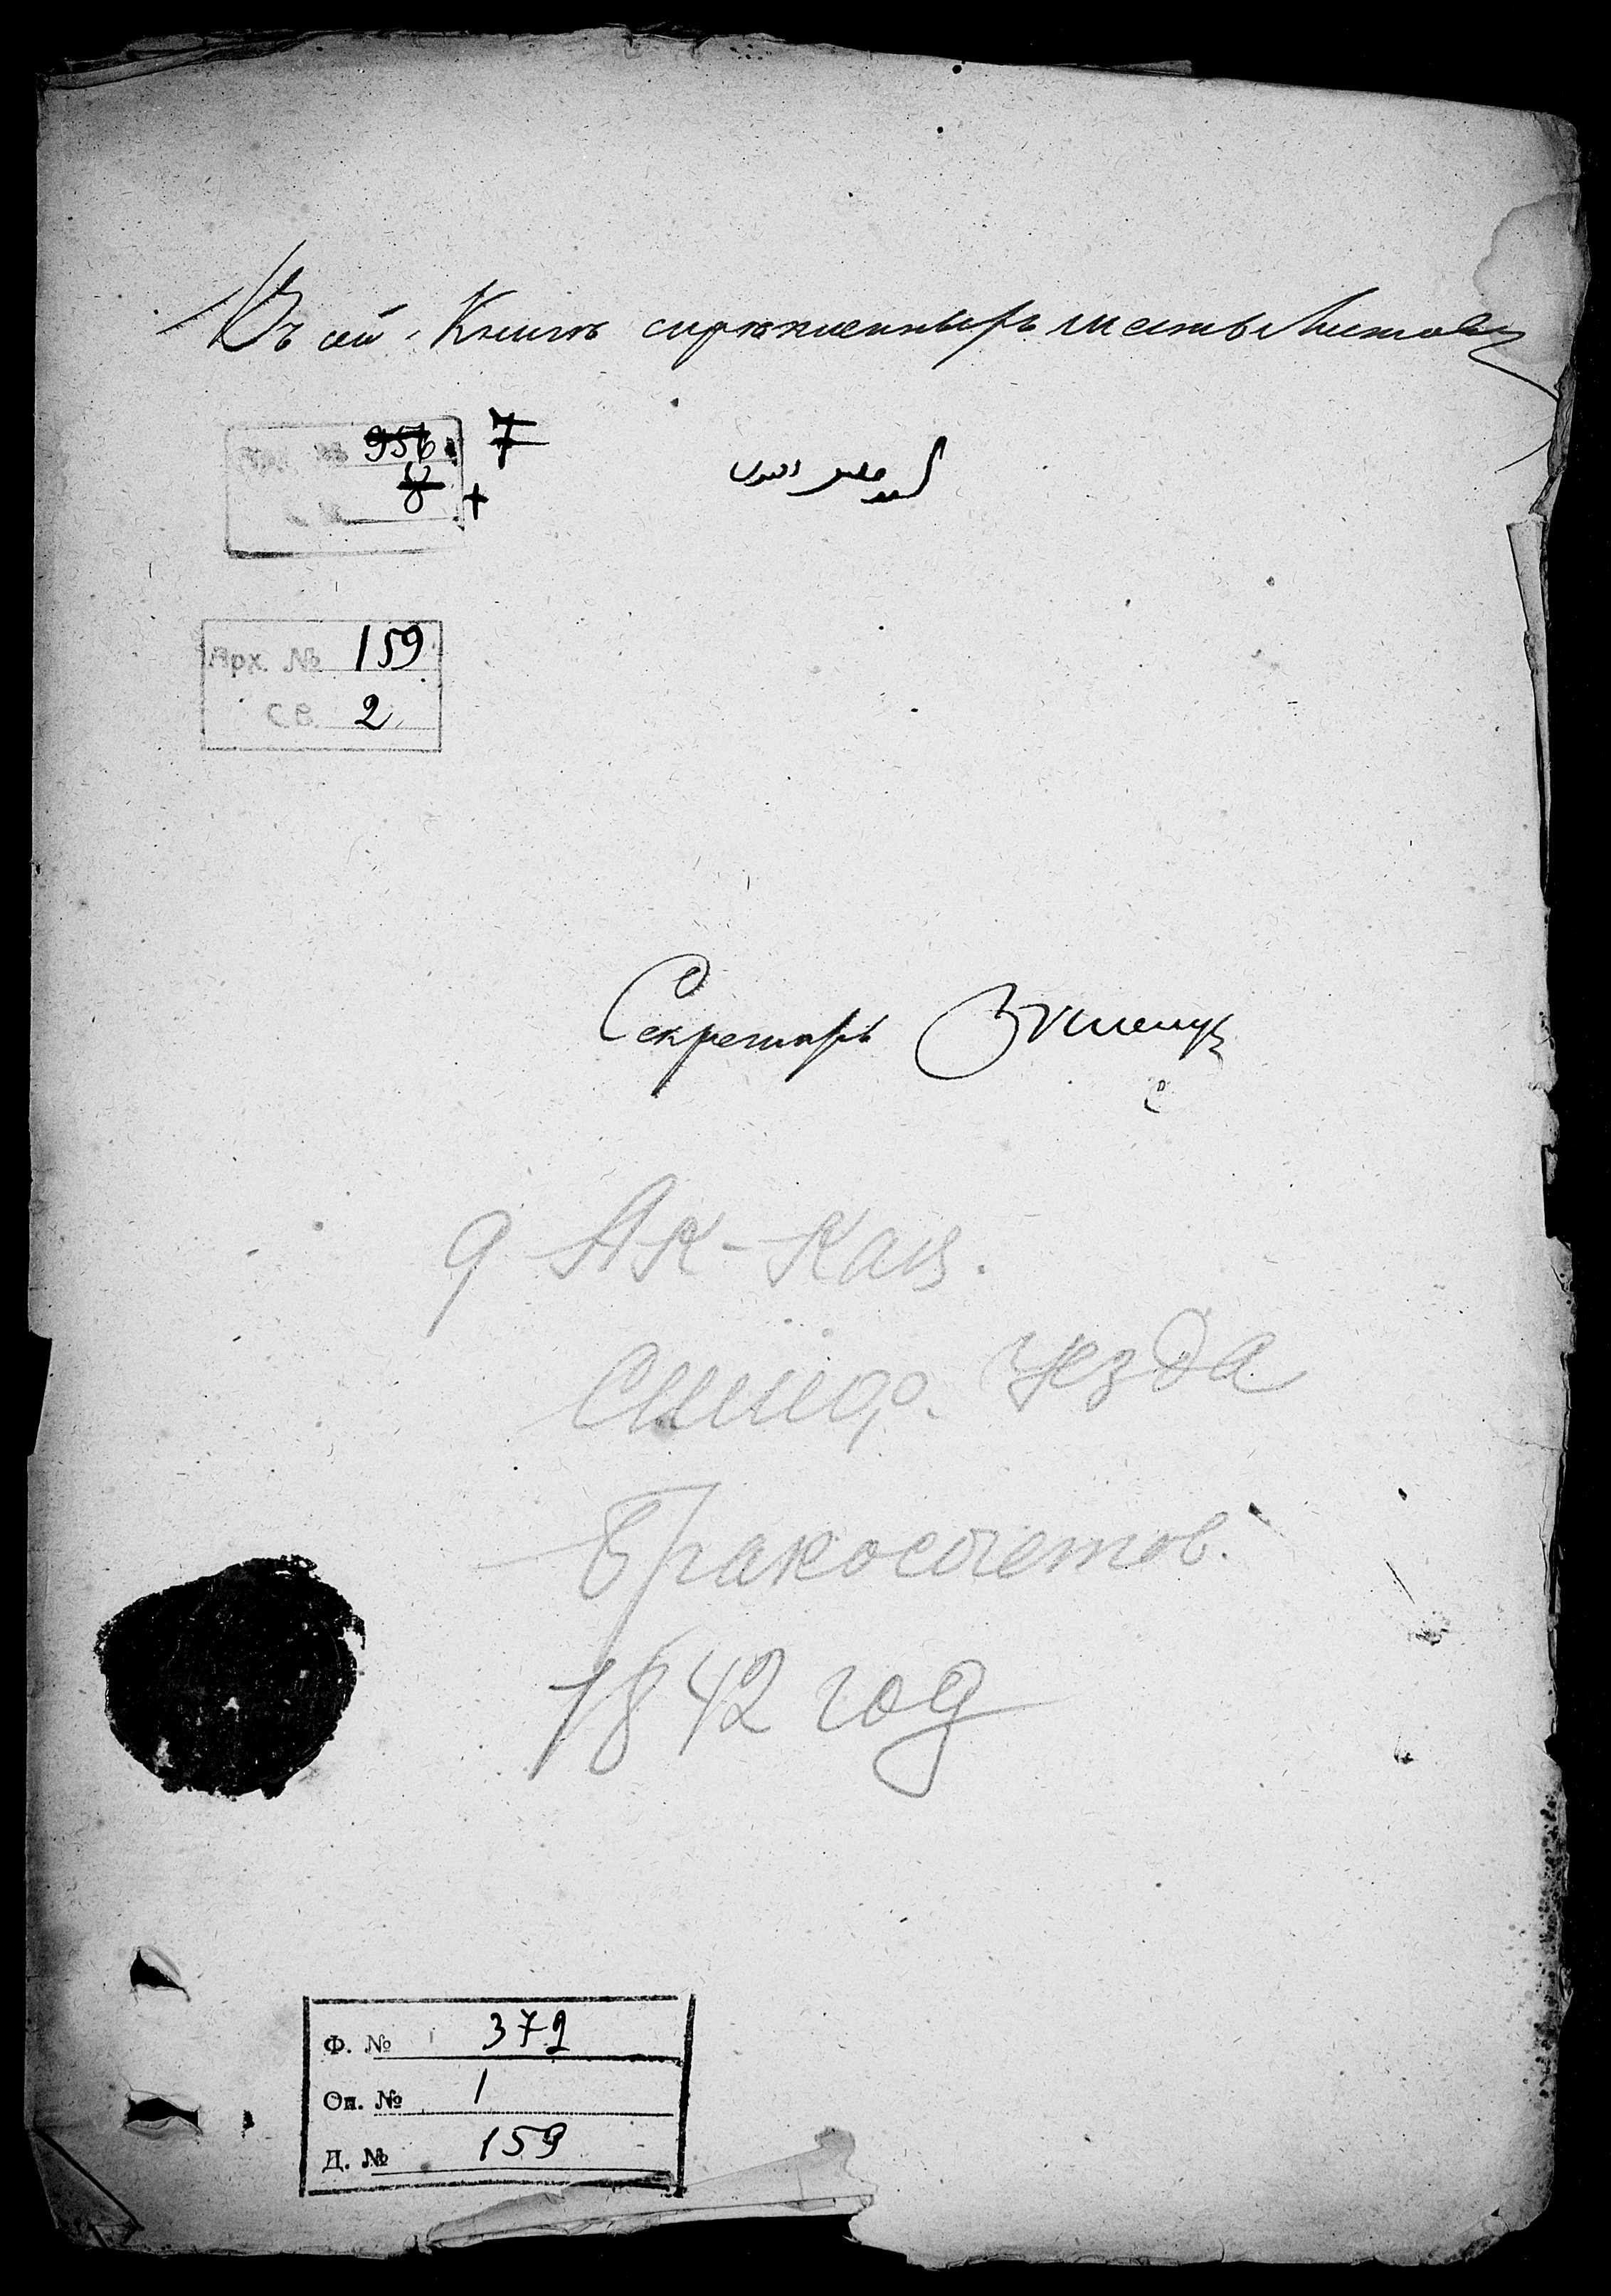 Въ сей Книге скрѣпленныхъ шесть Листовъ
Арх. № 956. 7
8 +
Арх. № 159
Св. 2
Секретарь
д Ак-Кая.
Симфер. уезда
бракосочетов.
1842 год
Ф. № 372
Оп. № 1
Д. № 159